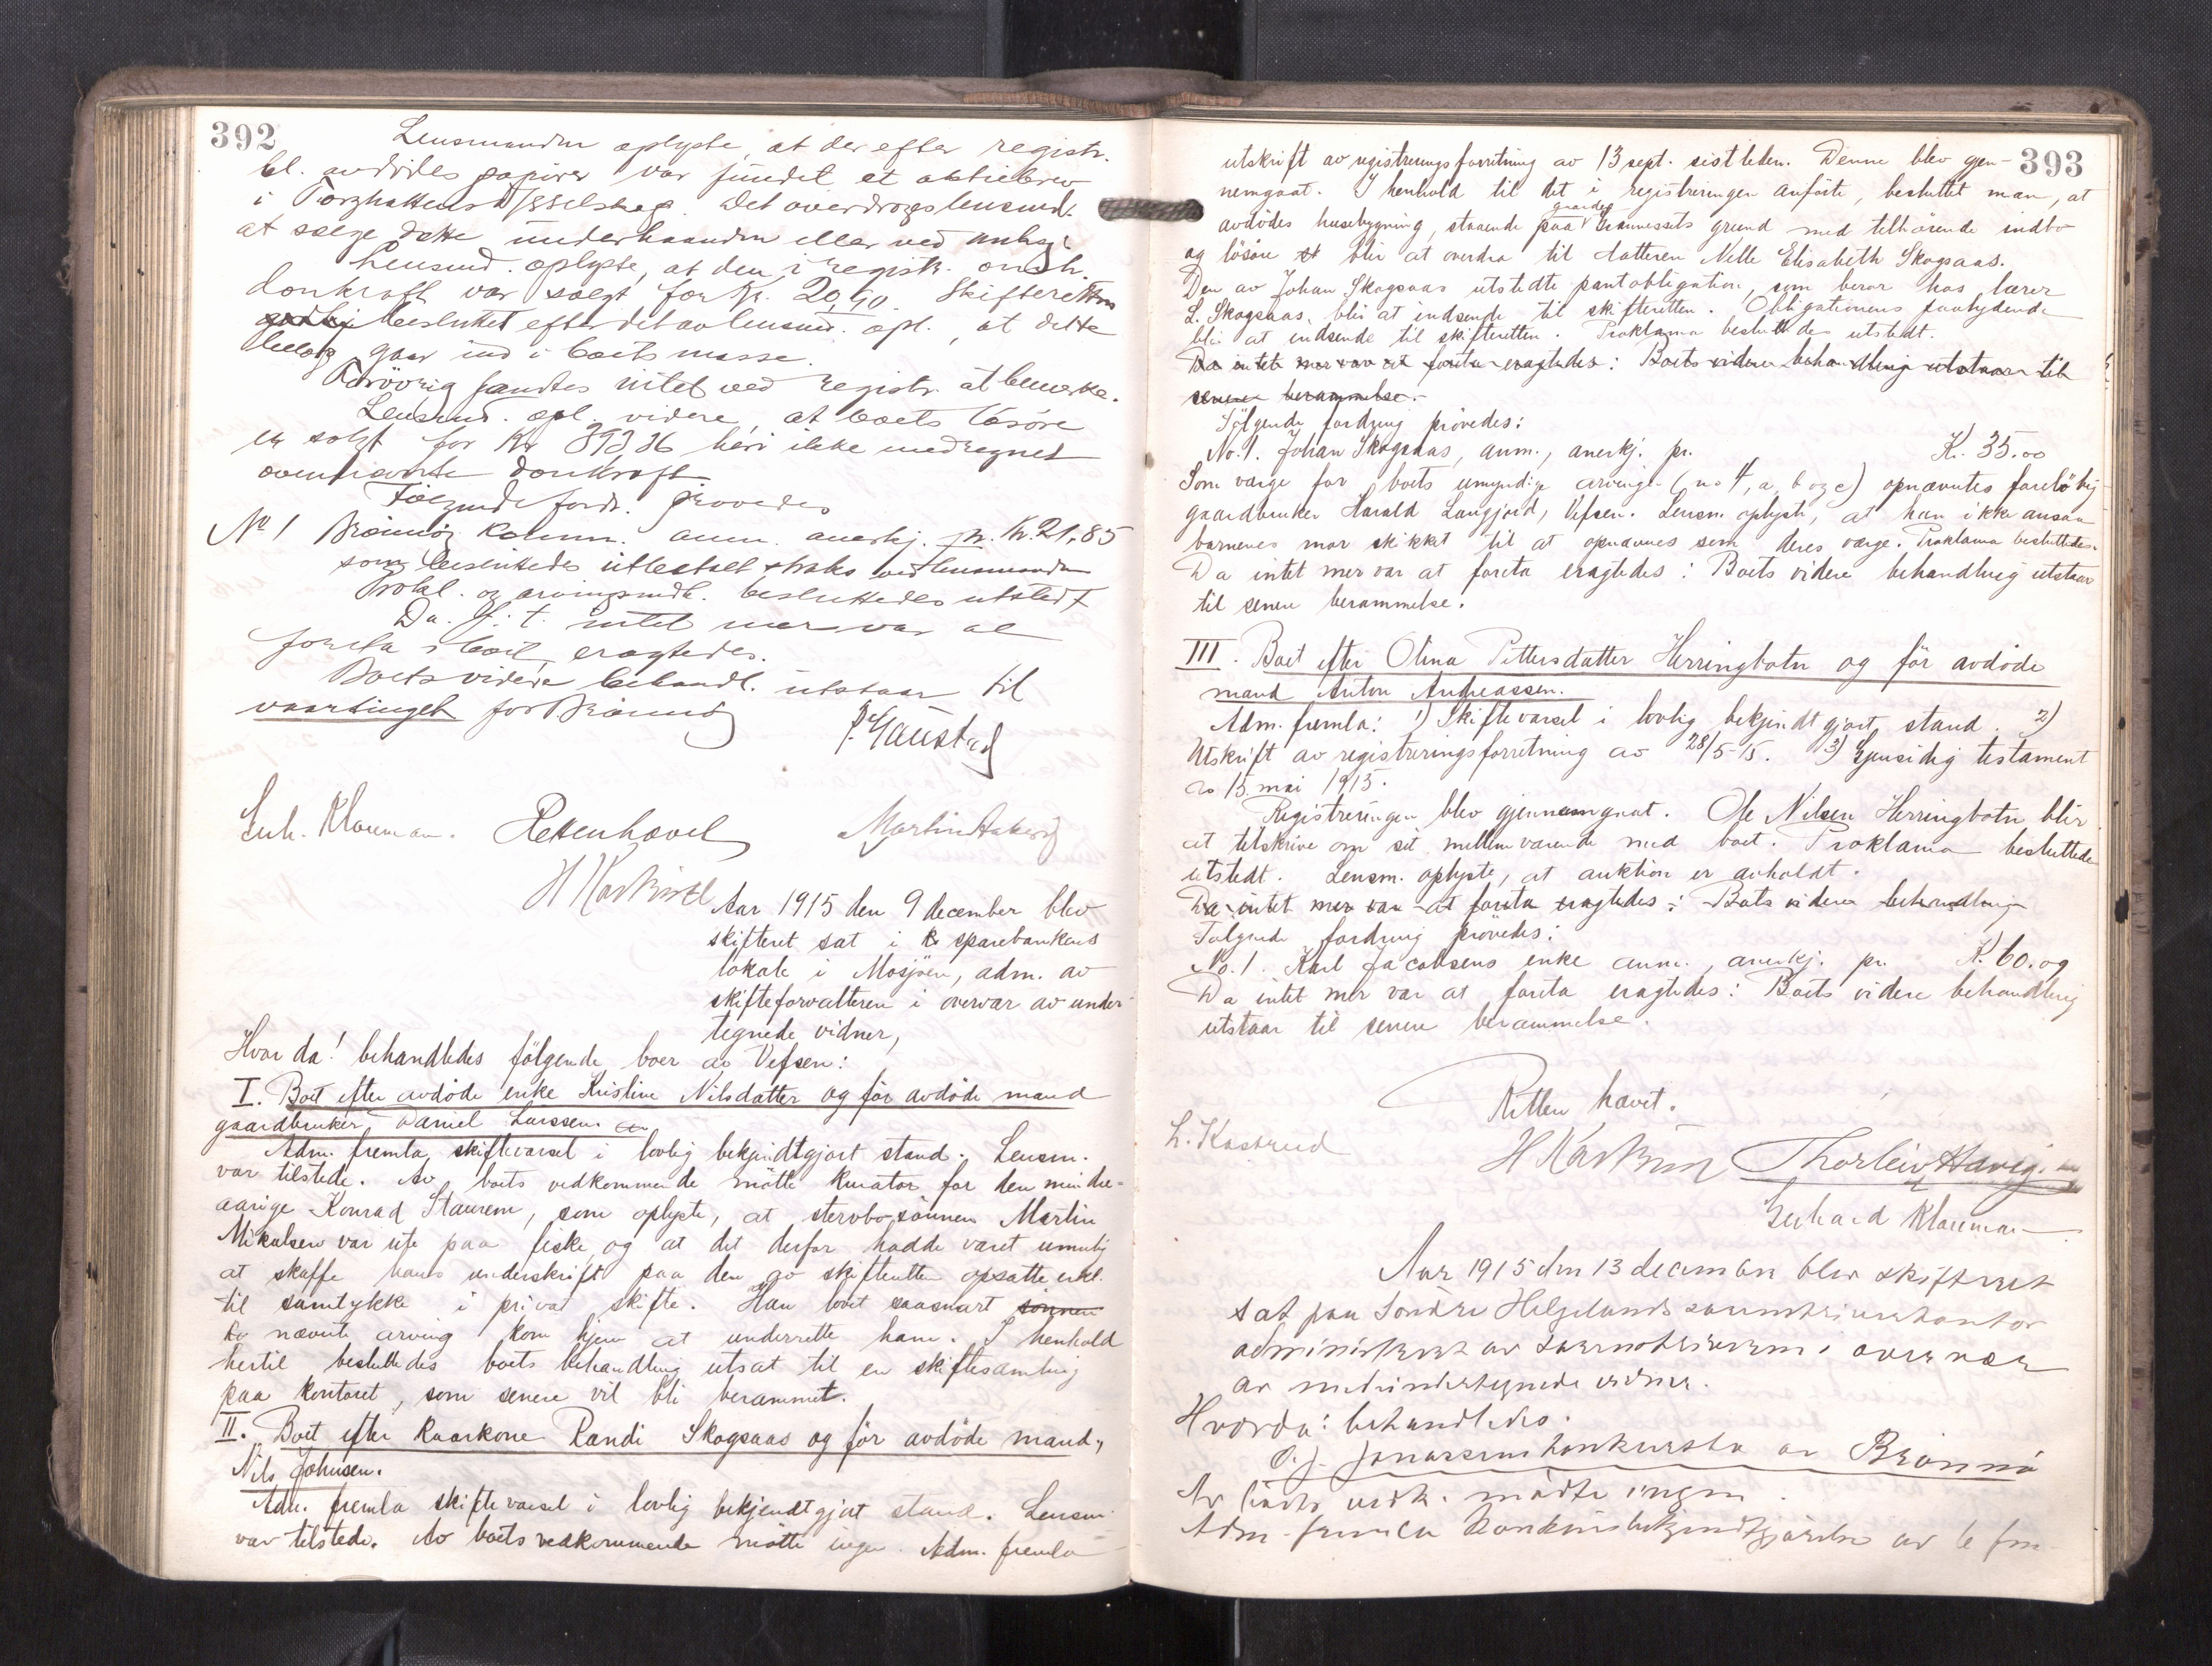 392
Lensmanden oplyste, at der efter registr.
bl. avdödes papirer var fundet et aktiebrev
i Torghattens D/S selskap. Det overdroges lensmd.
at sælge dette underhaanden eller ved auksj.
Lensmd. oplyste, at den i registr. omh.
donkraft var solgt for kr. 20,50. Skifteretten
besluttet efter det av lensmd. opl., at dette
beløp gaar ind i boets masse.
Forøvrig fandtes intet ved registr. at bemerke.
Lensmd. opl. videre, at boets løsöre
er solgt for kr 392 36 heri ikke medregnet
ovennævnte donkraft
Følgende fordr. prövedes
No 1 Brønnöy komm. anm. anerkj. pr. kr. 21,85
som besluttedes utbetalt straks ved lensmanden
Prokl. og arvingsindk. besluttedes utstedt
Da f. t. intet mer var at
foreta i boet eragtedes.
Boets videre behandl. utstaar til
vaartinget for Brønnöy
P. Gaustad
Gerh. Klauman. Retten hævet Martin
H Karstad
Aar 1915 den 9 december blev
skifteret sat i sparebankens
lokale i Mosjöen, adm. av
skifteforvalteren i overvær av under-
tegnede vidner,
Hvor da! behandledes fölgende boer av Vefsen:
I. Boet efter avdøde enke Kristine Nilsdatter og för avdöde mand
gaardbruker Daniel Larssen.
Adm. fremla skiftevarsel i lovlig bekjendtgjort stand. Lensm.
var tilstede. Av boets vedkommende mötte kurator for den mindre-
aarige Konrad Staurem, som oplyste, at stervbo-sönnen Martin
Mikalsen var ute paa fiske og at det derfor hadde været umulig
at skaffe hans underskrift paa den av skifteretten opsatte erkl.
til samtykke i privat skifte. Han lovet saasnart sönnen
nævnte arving kom hjem at underrette ham. I henhold
hertil besluttedes boets behandling utsat til en skiftesamling
paa kontoret, som senere vil bli berammet.
II. Boet efter kaarkone Randi Skogsaas og för avdöde mand,
Nils Johnsen.
Adm. fremla skiftevarsel i lovlig bekjendtgjort stand. Lensm.
var tilstede. Av boets vedkommende mötte ingen. Adm. fremla
393
utskrift av registreringsforretning av 13 sept. sistleden. Denne blev gjen-
nemgaat. I henhold til det i registreringen anförte, besluttet man, at
avdödes husebygning, staaende paa gaarden grund med tilhörende indbo
og lösöre blir at overdra til datteren Nelle Elisabeth Skogsaas.
Den av Johan Skogsaas utstedte pantobligation, som beror hos lærer
L. Skogsaas, blir at indsende til skifteretten. Obligationens paalydende
blir at indsende til skifteretten. Proklama besluttedes utstedt.
Da intet mer var at foreta eragtedes: Boets videre behandling utstaar til
senere berammelse.
Fölgende fordring prövedes:
No. 1. Johan Skogsaas, anm., anerkj. pr. Kr. 35.00
Som værge for boets umyndige arvinger (no 4, a, b og c) opnævntes foreløbig
gaardbruker Harald Langjord, Vefsen. Lensm. oplyste, at han ikke ansaa
barnenes mor skikket til at opnævnes som deres værge. Proklama besluttedes.
Da intet mer var at foreta eragtedes: Boets videre behandling utstaar
til senere berammelse.
III. Boet efter Olina Pettersdatter Herringbotn og för avdöde
mand Anton Andreassen.
Adm. fremla: 1) Skiftevarsel i lovlig bekjendtgjort stand. 2)
Utskrift av registreringsforretning av 28/5-15. 3) Gjensidig testament
av 15. mai 1915.
Registreringen blev gjennemgaat. Ole Nilsen Herringbotn blir
at tilskrive om sit mellemværende med boet. Proklama besluttedes
utstedt. Lensm. oplyste, at auktion er avholdt.
Da intet mer var at foreta eragtedes: Boets videre behandling
Fölgende fordring prövedes:
No. 1. Karl Jacobsens enke anm., anerkj. pr. K. 60.09
Da intet mer var at foreta eragtedes: Boets videre behandling
utstaar til senere berammelse.
Retten hævet.
L. Kastrud
H Karstad Thorleiv Havig
Gerhard Klauman
Aar 1915 den 13 december blev skifteret
sat paa Söndre Helgelands sorenskriverkontor
administreret av sorenskriveren i overvær
av medundertegnede vidner.
Hvorda: behandledes.
O. J. Jonassens konkursbo av Brönnö
Av boets vedk. mødte ingen.
Adm. fremla konkursbekjendtgjörelse av 6 fm